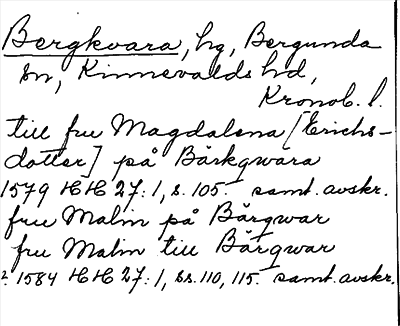 Bergkvara, hg, Bergunda
sn, Kinnevalds hd,
Kronob. l.
till fru Magdalena [Erichs-
dotter] på Bärkgwara
1579 HH 27:1, s. 105. samt. avskr.
fru Malin på Bärgwar
fru Malin till Bärgwar
? 1584 HH 27:1, ss. 110, 115. samt. avskr.